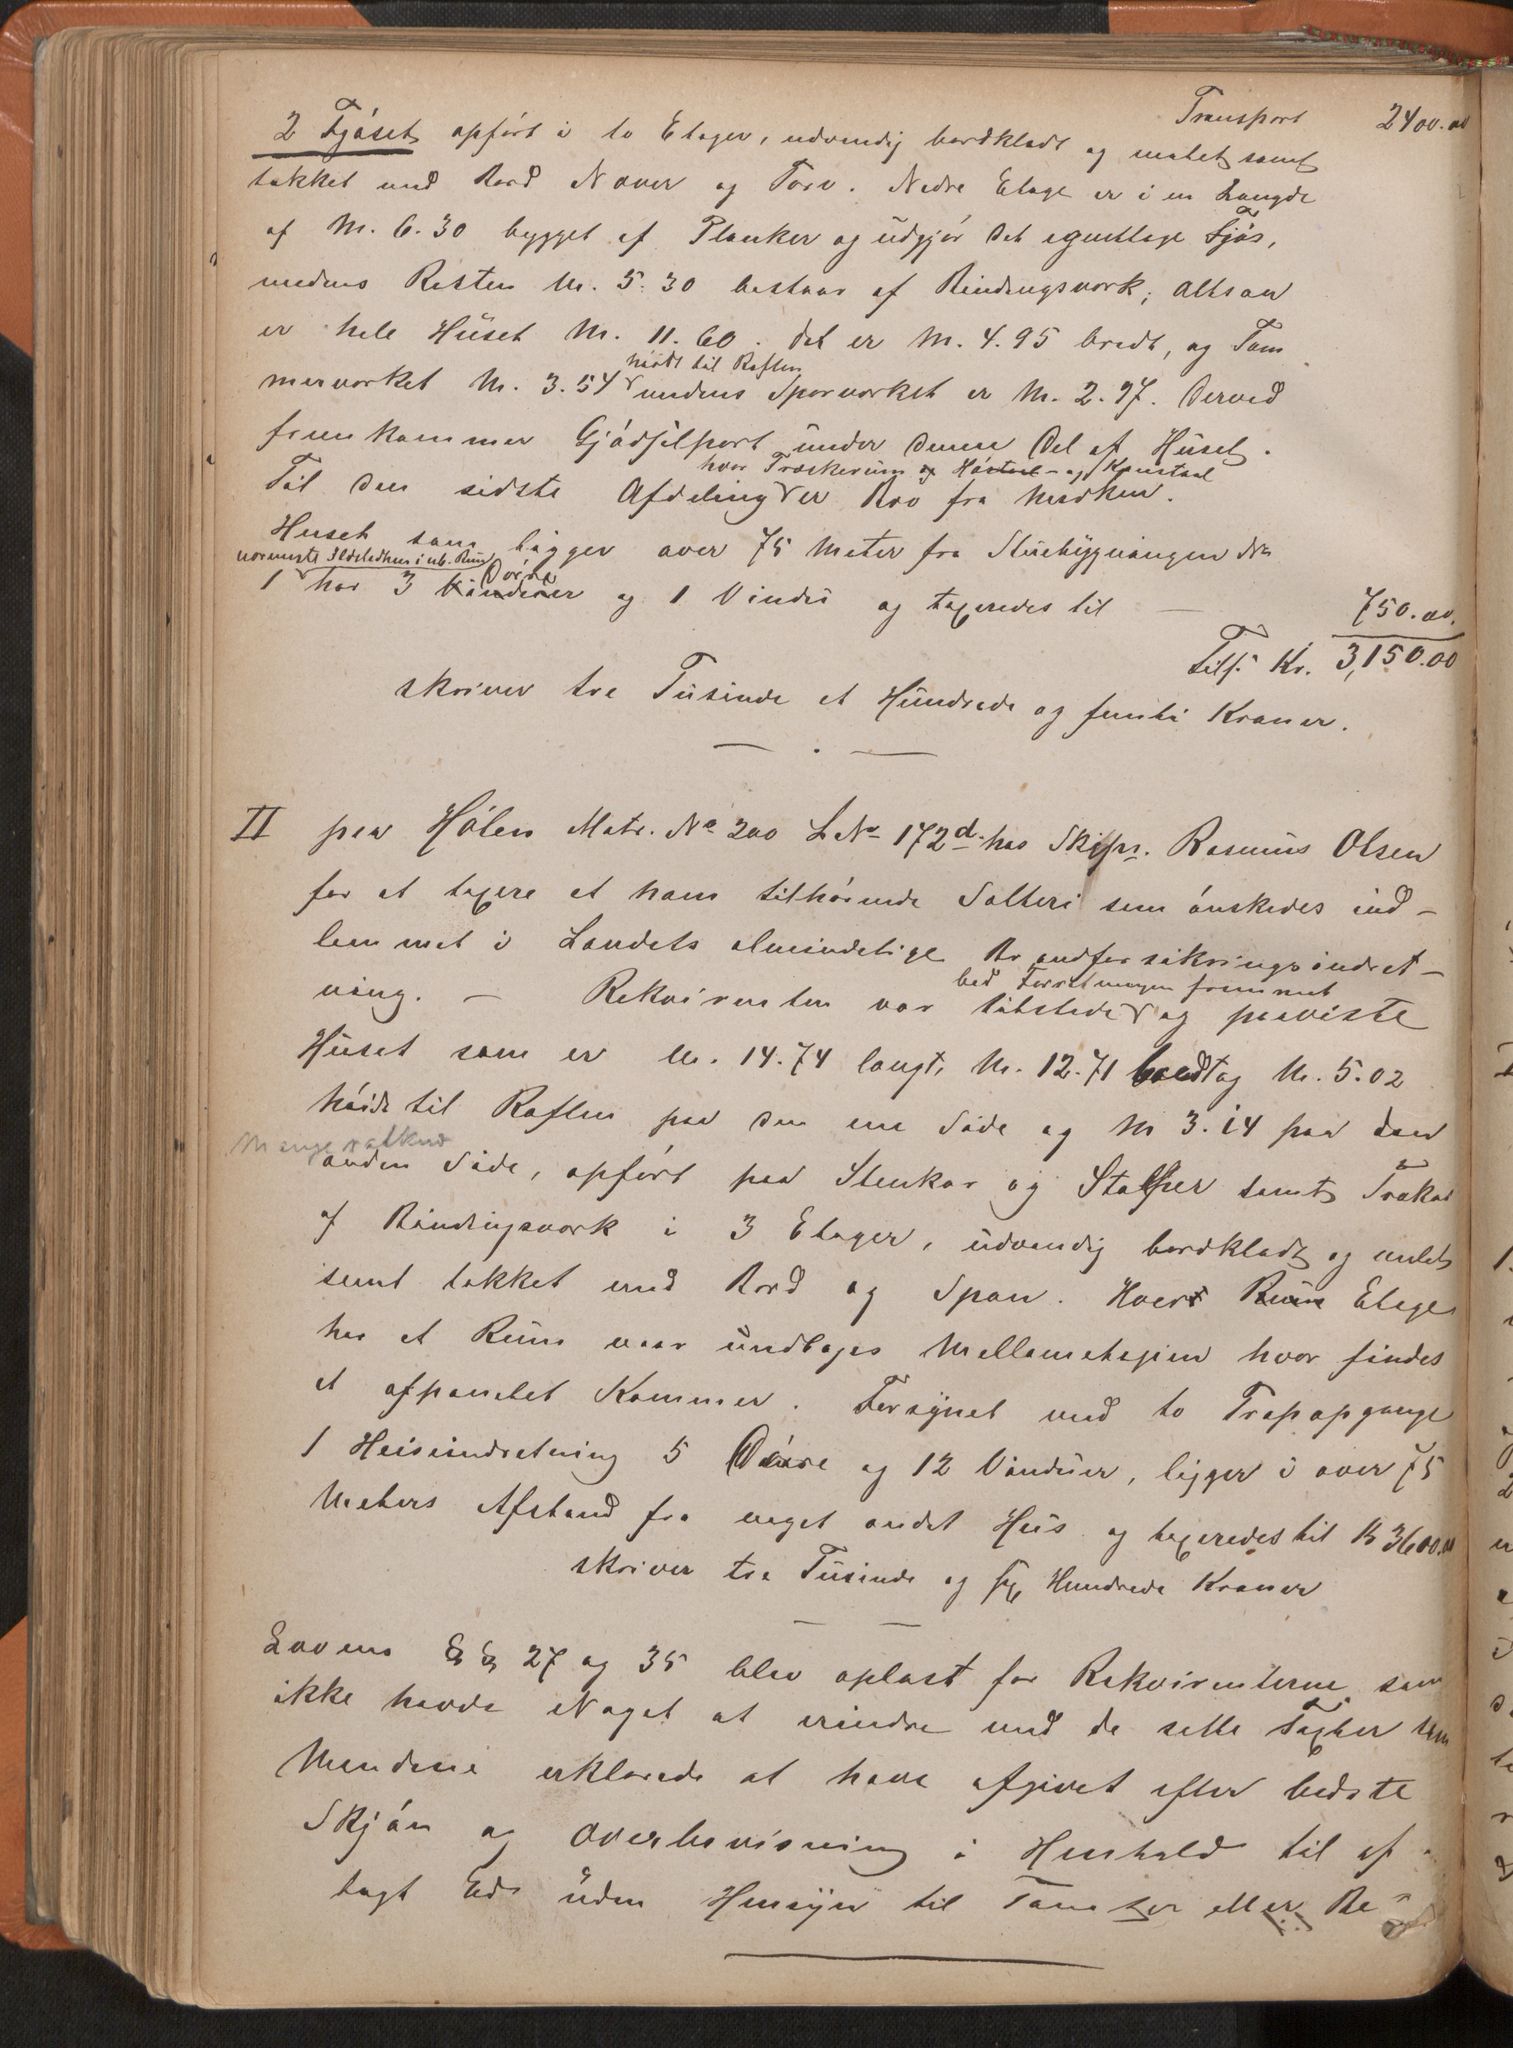 Transport 2400.00
2 Fjöset opført i to Etager, udvendig bordklædt og malet samt
tækket med Bord Næver og Torv. Nedre Etage er i en Længde
af M. 6.30 bygget af Planker og üdgjør det egentlige Fjøs,
medens Resten M. 5.30 bestaar af Bindingsværk; altsaa
er hele Hüset M. 11.60. det er M. 4.95 bredt, og Tøm
høidt til Raften
merværket M. 3.54 medens Sporværket er M. 2.97. Derved
fremkommer Gjødselport ünder denne Del af Hüset.
hvor Træskerum og Høstal og Kornstaal
Til den sidste Afdeling er Bro fra Marken.
Huset som ligger over 75 Meter fra Stüebygningen den
nærmeste Ildstedhus i ub. Rum
1 har 3 Vinduer Dørre og 1 Vindü og taxeredes til — 750.00.
Tils. Kr. 3,150.00
skriver tre Tüsinde et Hündrede og femti Kroner.
II paa Hølen Matr. No 200 L No 172d. hos Skipr. Rasmüs Olsen
for at taxere et ham tilhørende Salteri som ønskedes ind-
lemmet i Landets almindelige Brandforsikringsindret-
ved Forretningen fremmet
ning. — Rekvirenten var tilstede og paaviste
Hüset som er M. 14.74 langt, M. 12.71 bredt og M. 5.02
høidt til Raften paa den ene Side og M 3.14 paa den
anden Side, opført paa Stenkar og Stolper samt Trækar
af Bindingsværk i 3 Etager, üdvendig bordklædt og malet
samt tækket med Bord og Spon. Hvert Rüm Etage
har et Rüm naar ündtages Mellometagien hvor findes
et afpanelet Kammer. Forsÿnet med to Trapopgange
1 Heiseindretning 5 Dørre og 12 Vindüer, ligger i over 75
Meters Afstand fra noget andet Hüs og taxeredes til Kr 3600.00
skriver tre Tüsinde og sex Hundrede Kroner
Lovens §§ 27 og 35 blev oplæst for Rekvirenterne, som
ikke havde Noget at erindre mod de satte Taxter som
Mændene erklærede at have afgivet efter bedste
Skjøn og Overbevisning i Henhold til af
lagt Ed üden Hensÿn til Tomter eller Be-